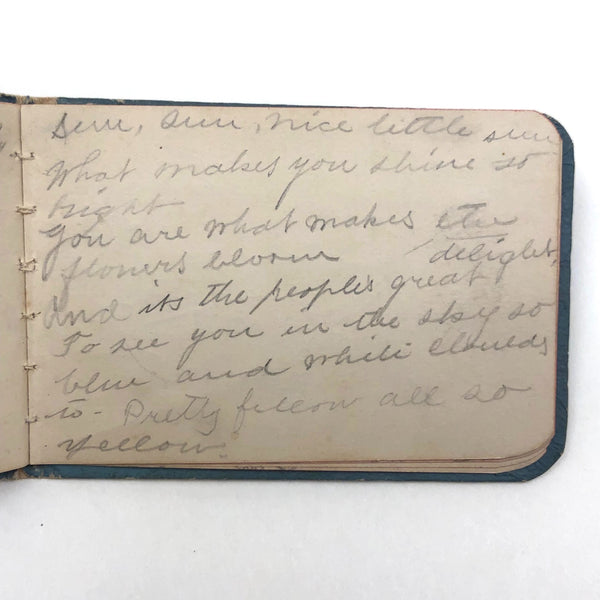 Sun, Sun, nice little sun
What makes you shine so
bright
You are what makes the
flowers bloom
And its the peoples great delight,
To see you in the sky so
blue and white Clouds
to - Pretty fellow all so
yellow.